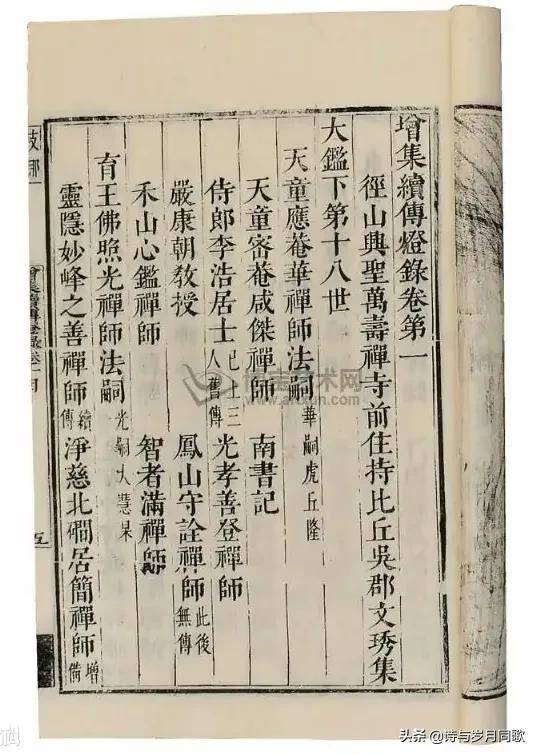 增集續傳燈錄卷第一
徑山興聖萬壽禪寺前住持比丘吳郡文琇集
大鑑下第十八世
天童應菴華禪師法嗣 華嗣虎丘隆
天童密菴咸傑禪師 南書記
侍郎李浩居士 已上三人舊傳 光孝善登禪師
嚴康朝教授 鳳山守詮禪師 此後無傳
禾山心鑑禪師 智者滿禪師
育王佛照光禪師法嗣 光嗣大慧杲
靈隱妙峰之善禪師 續傳 淨慈北磵居簡禪師 增備
增集續傳燈錄卷一目
五
博宝艺术网
www.artxun.com
头条 @诗与岁月同歌